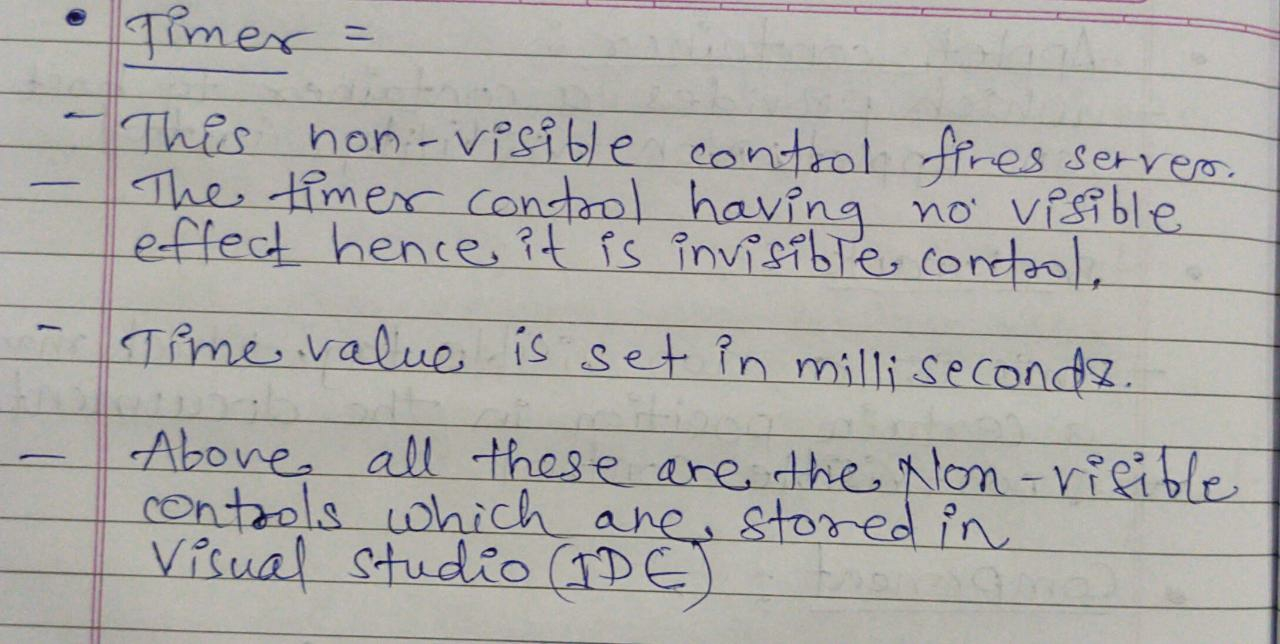 • Timer =
- This non-visible control fires server.
- The timer control having no visible
effect hence it is invisible control.
- Time value is set in milli seconds.
- Above all these are the Non-visible
controls which are stored in
Visual Studio (IDE)